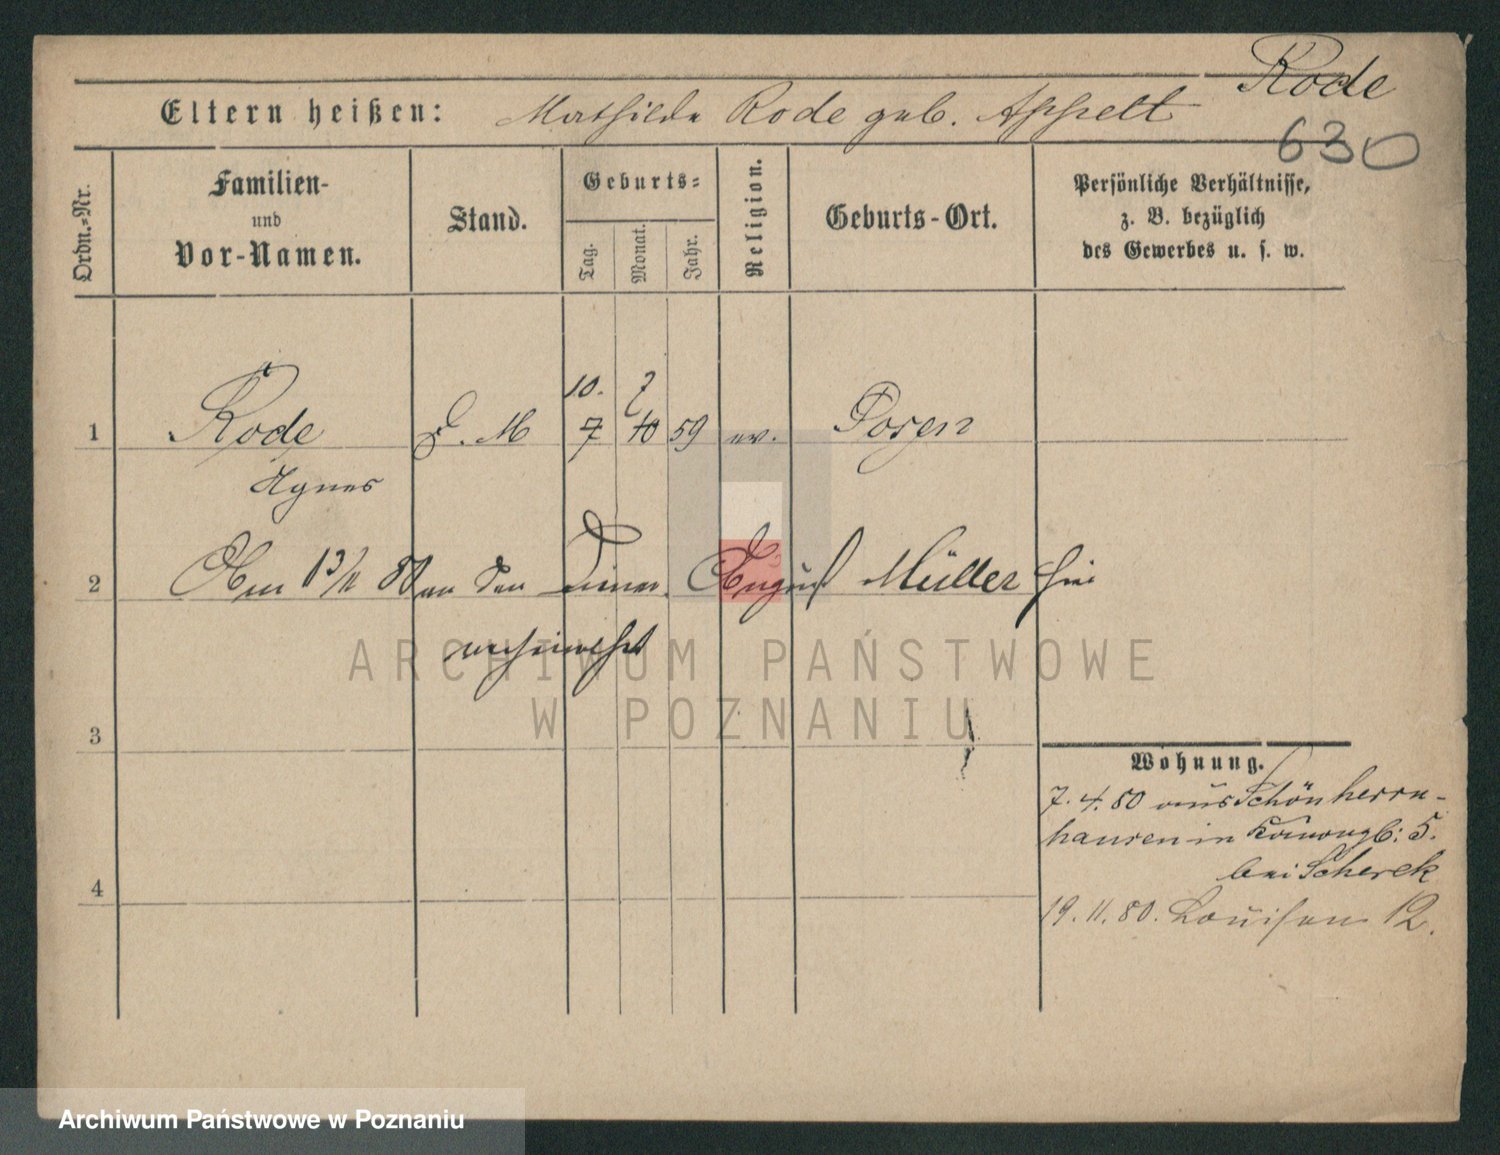 Rode
Eltern heißen: Mathilde Rode geb. Appelt
630
Ordn.-Nr.
Familien-
und
Vor-Namen.
Stand.
Geburts-
Tag.
Monat.
Jahr.
Religion.
Geburts-Ort.
Persönliche Verhältnisse,
z. B. bezüglich
des Gewerbes u. s. w.
10. 7
1 Rode D. M 7 10 59 ev. Posen
Agnes
2 Am 13/11 80 an den Diener August Müller hie
verheirathet
ARCHIWUM PAŃSTWOWE
W POZNANIU
3
Wohnung.
7. 4. 80 aus Schönherrn-
hausen in Kanongß: 5.
bei Scherek
4
19. 11. 80. Louisen 12.
Archiwum Państwowe w Poznaniu